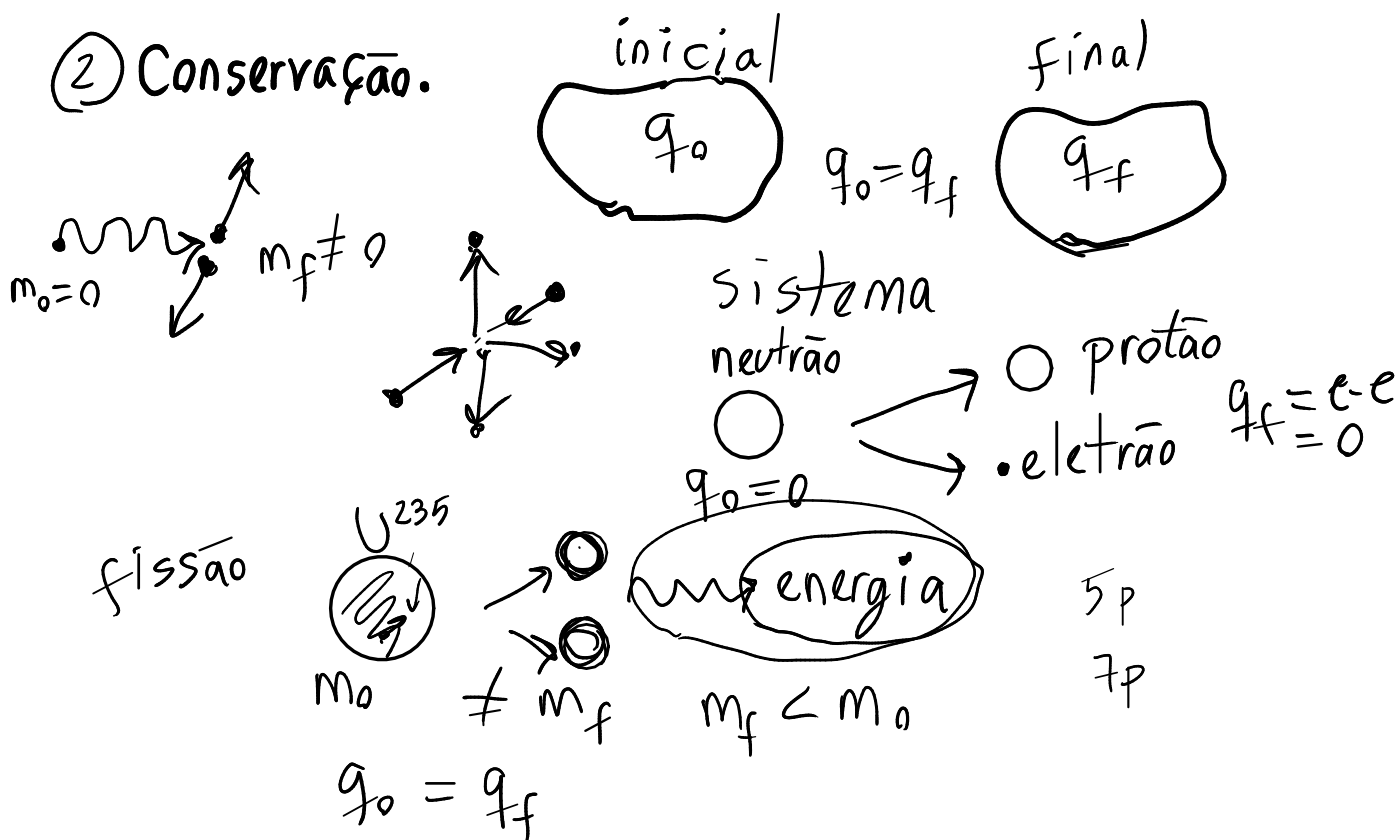 ② Conservação.
inicial
final
q₀
q₀ = q_f
q_f
m₀ = 0
m_f ≠ 0
sistema
neutrão
q₀ = 0
protão
eletrão
q_f = e-e
= 0
fissão
U²³⁵
energia
m₀ ≠ m_f
m_f < m₀
5p
7p
q₀ = q_f